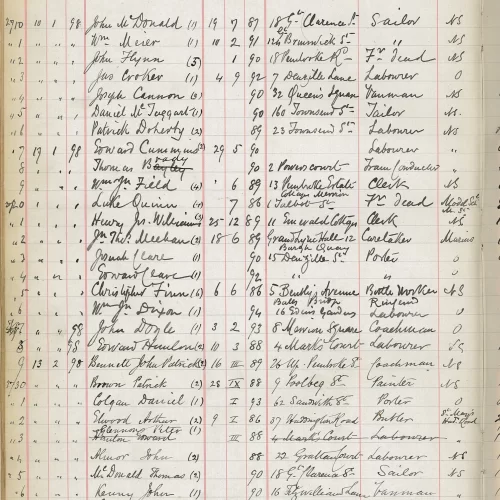 2710 10 1 98 John McDonald (1) 19 7 87 18 Gt Clarence St Sailor NS
" 1 " " " Wm Meier (1) 10 2 91 124 Brunswick St " "
" 2 " " " John Flynn (5) 1 90 18 Pembroke Rd Fr dead NS
" 3 " " " Jas Croker (1) 4 9 92 7 Denzille Lane Labourer O
" 4 " " " Joseph Cannon (3) 90 32 Queen's Square Vanman NS
" 5 " " " Daniel McTaggart (1) 90 160 Townsend St Tailor NS
" 6 " " " Patrick Doherty (2) 89 23 Townsend St Labourer NS
" 7 19 1 98 Edward Cummins (2) 29 5 90 Labourer "
8 " " " Thomas 90 2 Powerscourt Tram Conductor "
9 " " " Field (4) 6 89 13 Pembroke Estate Clerk NS
Cottage
2720 " " " Luke Quinn 7 86 1 Talbot St Fr dead
" 1 " " " Henry Williams 25 12 89 11 Emerald Cottages Clerk NS
" 2 " " " Jn Thos Meehan (2) 18 6 89 12 Caretaker
Burgh Quay
" 3 " " " Joseph (1) 90 15 Denzille St Porter O
" 4 " " " Edward (1) 92 " " "
" 5 " " " Christopher Finn (6) 6 6 86 5 Avenue Bottle Worker NS
Ringsend
" 6 " " " Wm Jn Dixon (1) 94 16 Gardens Labourer O
" 98 John Doyle (1) 3 2 93 8 Merrion Square Coachman O
8 " 98 Edward Hanlon (2) 10 3 88 4 Mark's Court Labourer
9 13 2 98 Bennett John Patrick (2) 16 III 89 26 Up. Pembroke St Coachman NS
2730 " " " Brown Patrick (2) 28 IX 88 9 Poolbeg St Painter NS
" 1 " " " Colgan Daniel (1) I 93 62 Sandwith St Porter O
" 2 " " " Elwood Arthur (2) 9 I 86 37 Haddington Road Butler
Peter (1)
" 3 " " " Hanlon Edward III 88 4 Mark's Court Labourer
" 4 " " " John (2) 88 22 Grattan Court Labourer NS
" 5 " " " McDonald Thomas (2) 90 18 Gt Clarence St Sailor NS
" 6 " " " Kenny John (1) 90 16 Fitzwilliam Lane Vanman